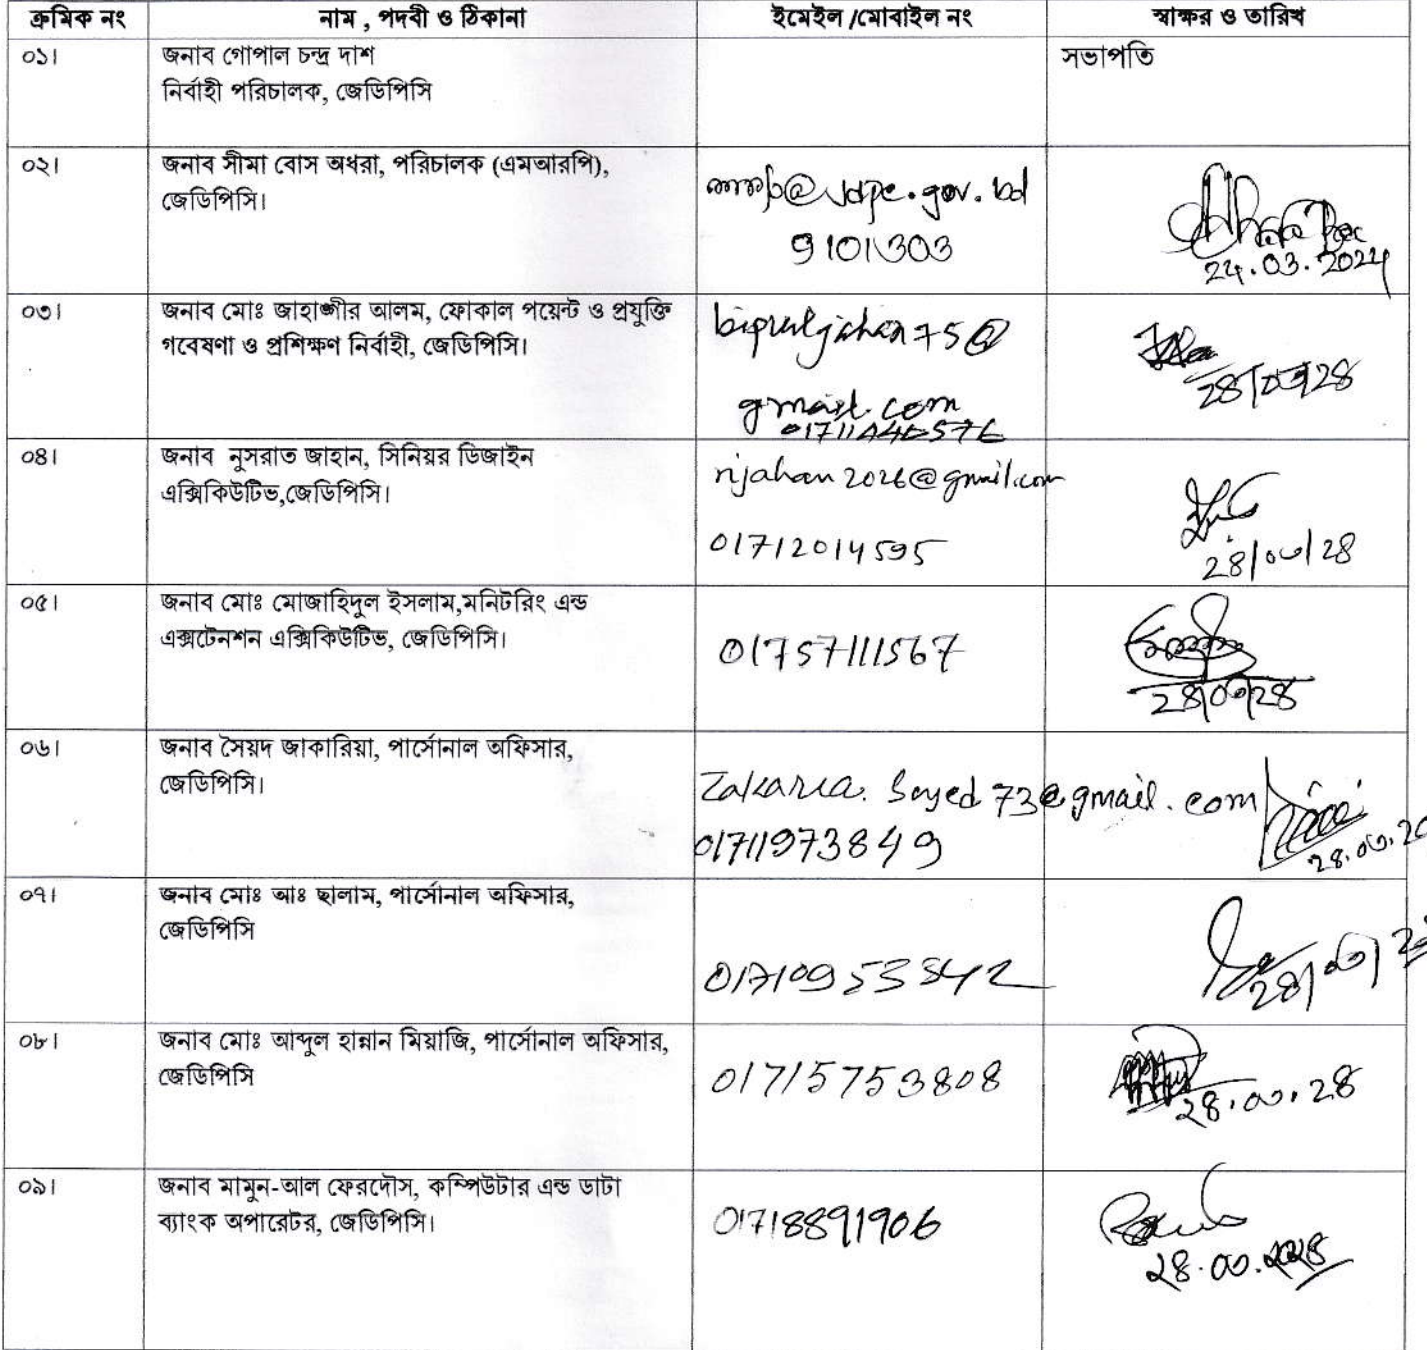 ক্রমিক নং নাম , পদবী ও ঠিকানা ইমেইল /মোবাইল নং স্বাক্ষর ও তারিখ
০১। জনাব গোপাল চন্দ্র দাশ সভাপতি
নির্বাহী পরিচালক, জেডিপিসি
০২। জনাব সীমা বোস অধরা, পরিচালক (এমআরপি),
জেডিপিসি।
9101303
24.03.2024
০৩। জনাব মোঃ জাহাঙ্গীর আলম, ফোকাল পয়েন্ট ও প্রযুক্তি
গবেষণা ও প্রশিক্ষণ নির্বাহী, জেডিপিসি।
gmail.com
২৪/০৩/২৪
০৪। জনাব নুসরাত জাহান, সিনিয়র ডিজাইন
এক্সিকিউটিভ,জেডিপিসি।
njahan2026@gmail.com
01712014595
২৪/০৩/২৪
০৫। জনাব মোঃ মোজাহিদুল ইসলাম,মনিটরিং এন্ড
এক্সটেনশন এক্সিকিউটিভ, জেডিপিসি।
01757111567
২৪/০৩/২৪
০৬। জনাব সৈয়দ জাকারিয়া, পার্সোনাল অফিসার,
জেডিপিসি।
Zakaria.Sayed73@gmail.com
01711973849
০৭। জনাব মোঃ আঃ ছালাম, পার্সোনাল অফিসার,
জেডিপিসি
০৮। জনাব মোঃ আব্দুল হান্নান মিয়াজি, পার্সোনাল অফিসার,
জেডিপিসি
01715753808
২৪.০৩.২৪
০৯। জনাব মামুন-আল ফেরদৌস, কম্পিউটার এন্ড ডাটা
ব্যাংক অপারেটর, জেডিপিসি।
01718891906